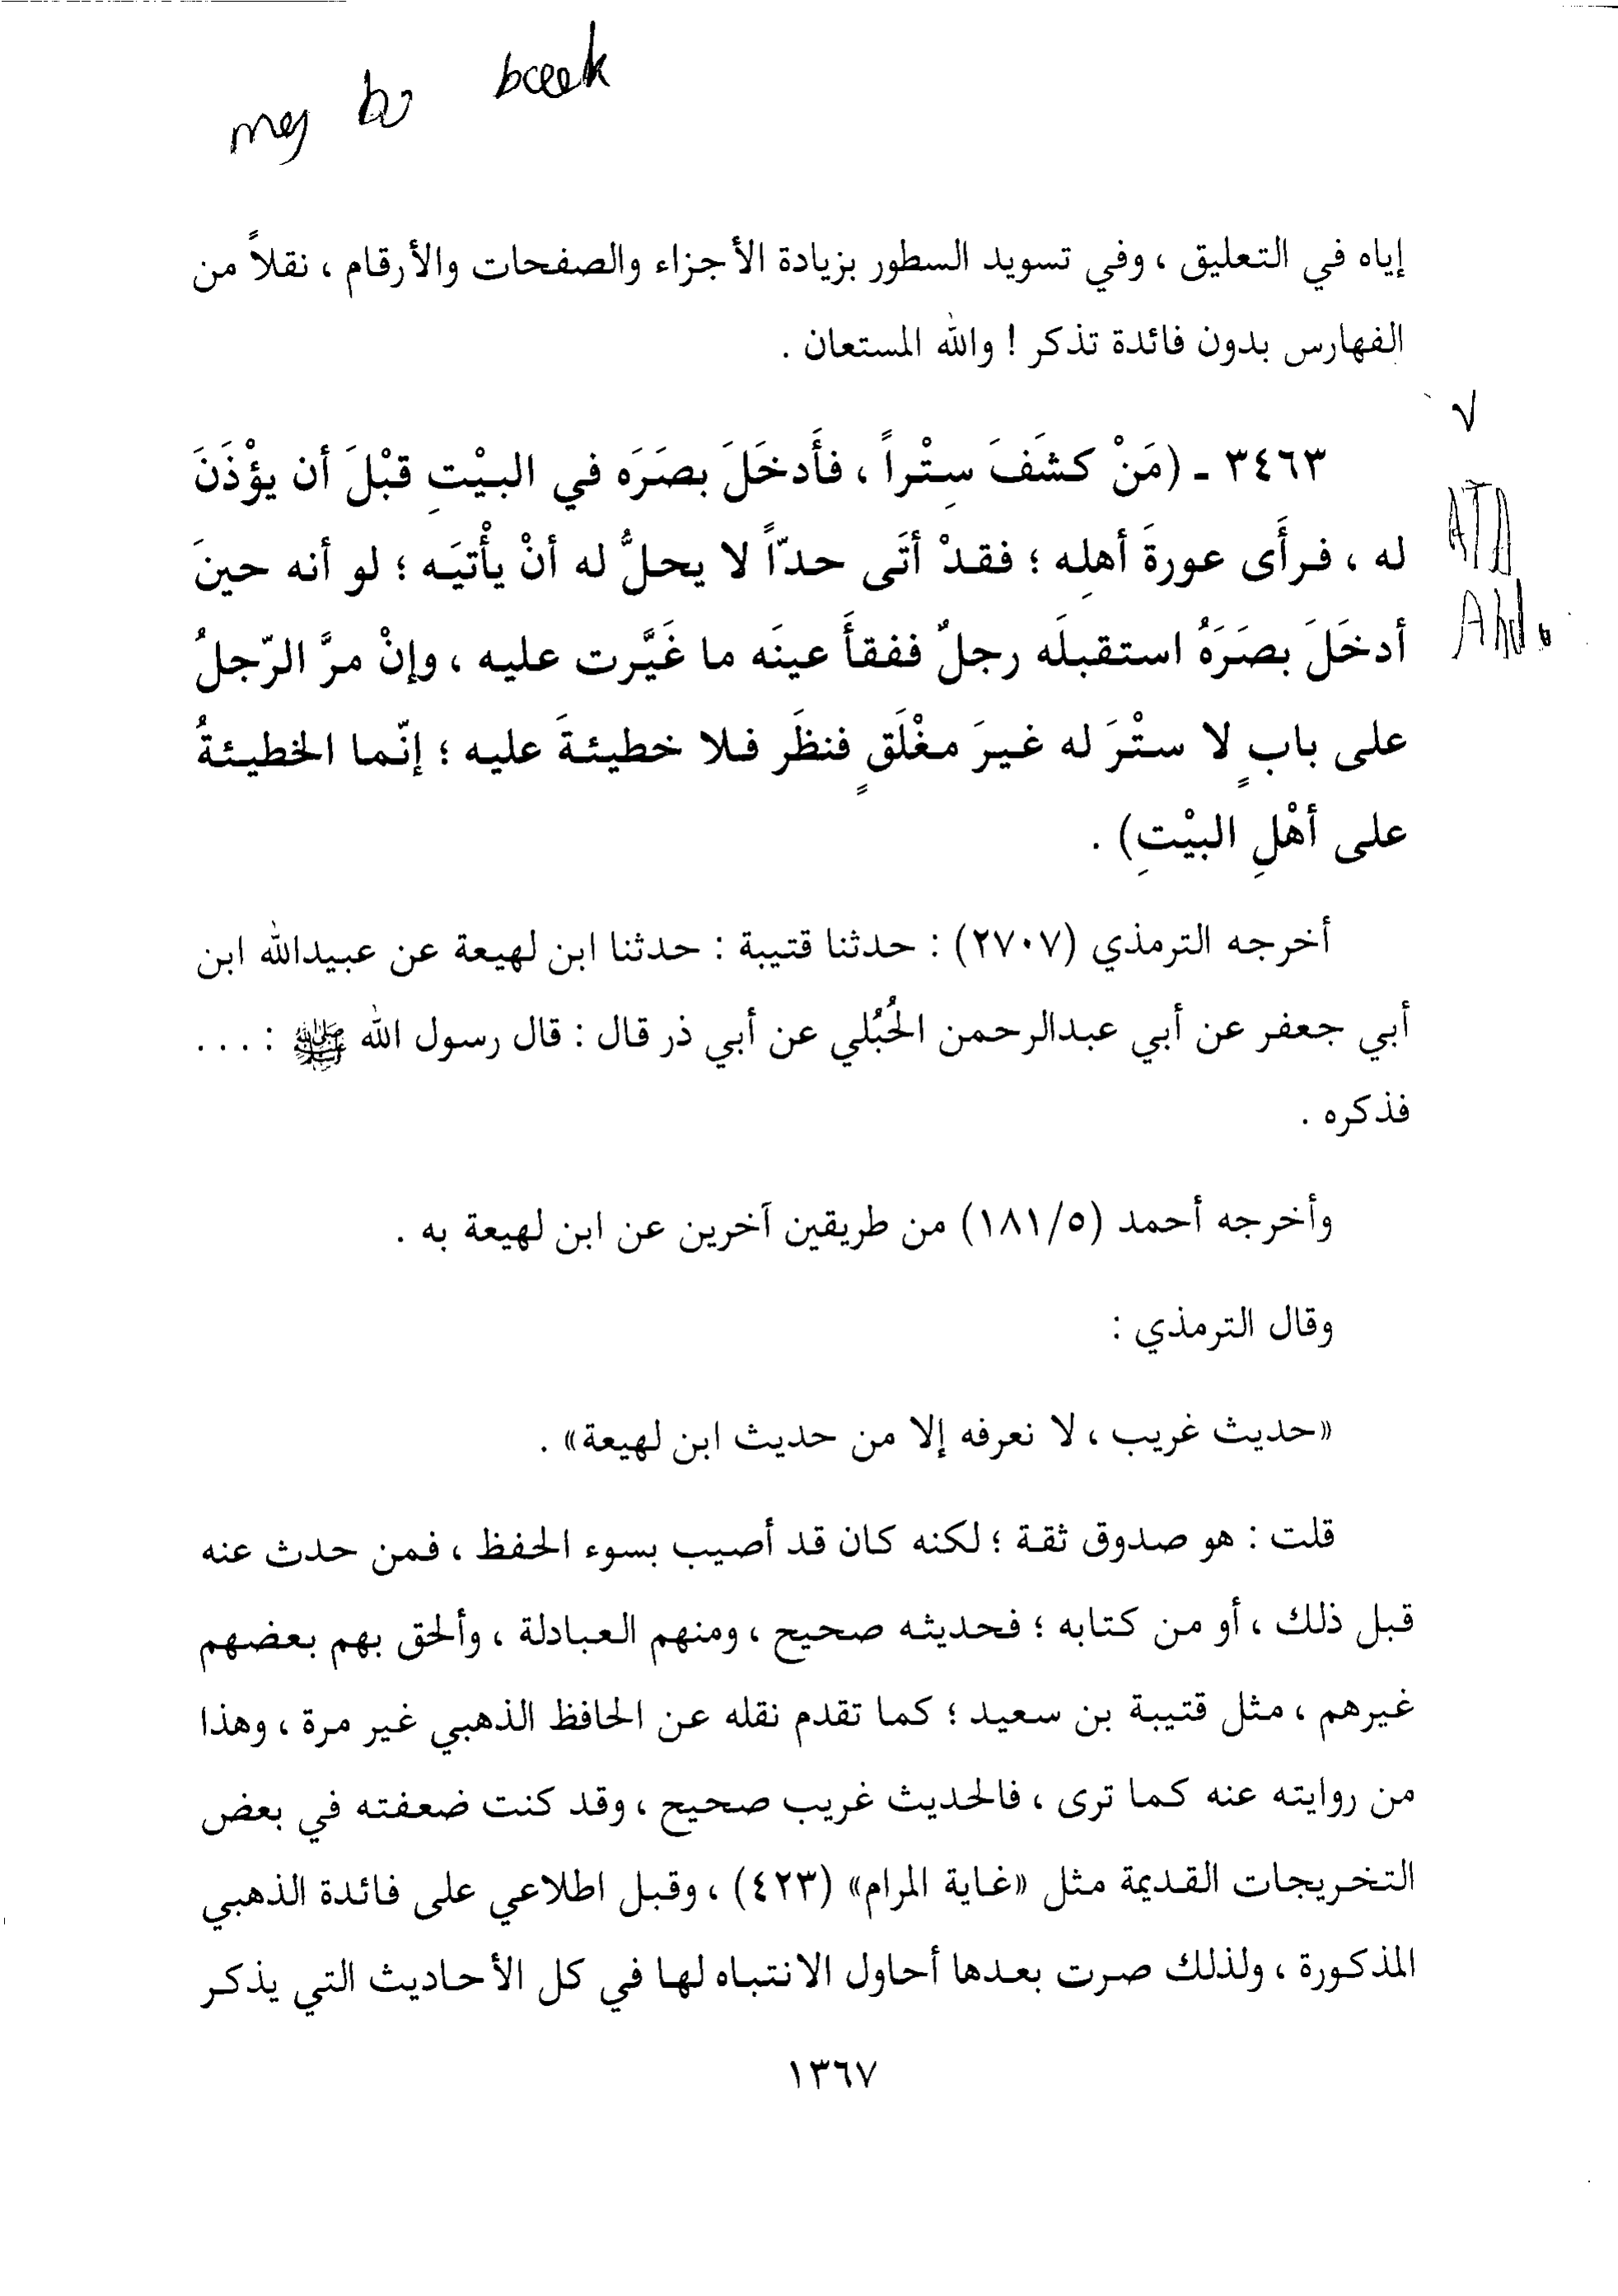 إياه في التعليق ، وفي تسويد السطور بزيادة الأجزاء والصفحات والأرقام ، نقلاً من
الفهارس بدون فائدة تذكر ! والله المستعان .
٣٤٦٣ ـ (مَنْ كشَفَ سِتْراً ، فأَدخَلَ بصَرَه في البيْتِ قبْلَ أن يؤْذَنَ
له ، فرأَى عورةَ أهلِه ؛ فقدْ أتَى حدّاً لا يحلُّ له أنْ يأْتيَه ؛ لو أنه حينَ
أدخَلَ بصَرَهُ استقبلَه رجلٌ ففقأَ عينَه ما غَيَّرت عليه ، وإنْ مرَّ الرّجلُ
على بابٍ لا ستْرَ له غيرَ مغْلَقٍ فنظَر فلا خطيئةَ عليه ؛ إنّما الخطيئةُ
على أهْلِ البيْتِ) .
أخرجه الترمذي (٢٧٠٧) : حدثنا قتيبة : حدثنا ابن لهيعة عن عبيدالله ابن
أبي جعفر عن أبي عبدالرحمن الحُبُلي عن أبي ذر قال : قال رسول الله ﷺ : . . .
فذكره .
وأخرجه أحمد (١٨١/٥) من طريقين آخرين عن ابن لهيعة به .
وقال الترمذي :
«حديث غريب ، لا نعرفه إلا من حديث ابن لهيعة» .
قلت : هو صدوق ثقة ؛ لكنه كان قد أصيب بسوء الحفظ ، فمن حدث عنه
قبل ذلك ، أو من كتابه ؛ فحديثه صحيح ، ومنهم العبادلة ، وألحق بهم بعضهم
غيرهم ، مثل قتيبة بن سعيد ؛ كما تقدم نقله عن الحافظ الذهبي غير مرة ، وهذا
من روايته عنه كما ترى ، فالحديث غريب صحيح ، وقد كنت ضعفته في بعض
التخريجات القديمة مثل «غاية المرام» (٤٢٣) ، وقبل اطلاعي على فائدة الذهبي
المذكورة ، ولذلك صرت بعدها أحاول الانتباه لها في كل الأحاديث التي يذكر
١٣٦٧